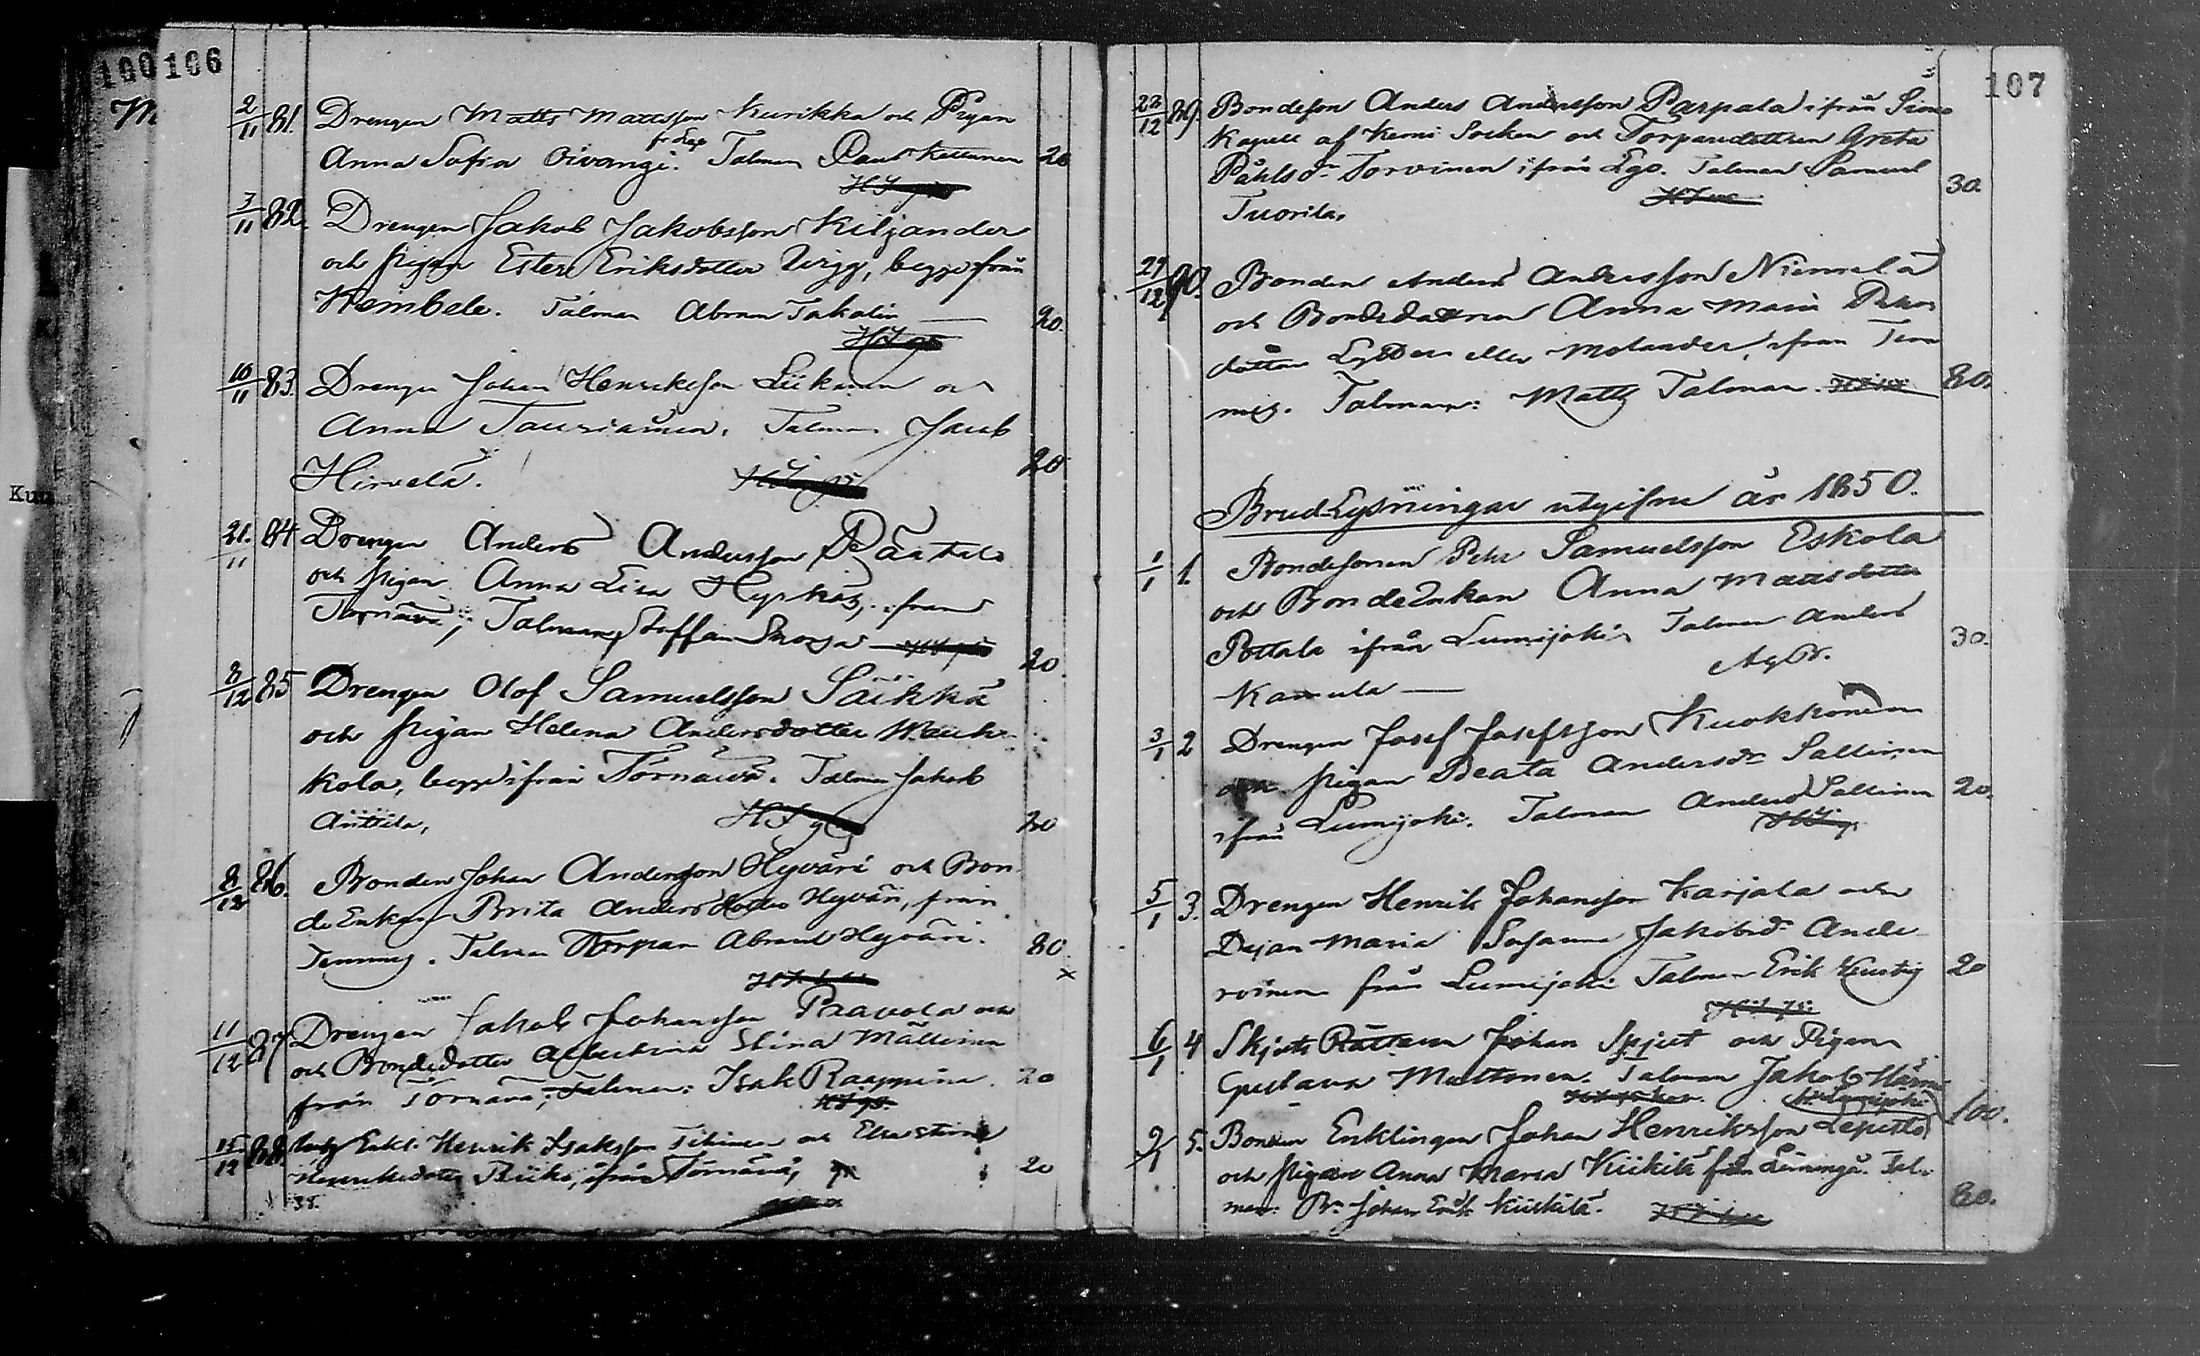 100 106
2/11 81. Drengen Matts Mattsson Kurikka och Pigan
Anna Sofia Oivangi. Talman Paul Kettunen 20
3/11 82. Drengen Jakob Jakobsson Kiljander
och pigan Ester Eriksdotter Urigg, begge från
Kembele. Talman Abram Jakolin 20.
10/11 83. Drengen Johan Henriksson Liikanen och
Anna Tauriainen. Talman Jacob
Hirvelä. 20
21/11 84 Drengen Anders Andersson
och pigan Anna Lisa Hyrkäs, ifrån
Tornävä; Talman Staffan 20
8/12 85 Drengen Olof Samuelsson Säikkä
och pigan Helena Andersdotter Wauh-
kola, begge ifrån Törnävä. Talman Jakob
Anttila, 20
8/12 86. Bonden Johan Andersson Hyväri och Bon
de Enkan Brita Andersdotter Hyväri, från
Temmes. Talman Torpar. Abram Hyväri. 80.
x
11/12 87 Drengen Jakob Johansson Paavola och
och Bondedotter Albertina Stina Mällinen
från Törnävä; Talman: Isak Raappana. 20
15/12 88. Enkl. Henrik Isaksson Tihinen och Elsa Stina
Henriksdotter Piiko, ifrån Törnävä; 20
107
22/12 89. Bondeson Anders Andersson Parpala ifrån Simo
Kapell af Kemi Socken och Torparedottren Greta
Påhlsdr Torvinen ifrån Lgo. Talman Samuel
Tuorila. 30.
29/12 90. Bonden Anders Andersson Niemelä
och Bondedottren Anna Maria Peters
dotter eller Molander, ifrån Tem
mes. Talman: Matts Talman. 80.
Brud-Lysningar utgifne år 1850.
1/1 1 Bondesonen Petr Samuelsson Eskola
och BondeEnkan Anna Mattsdotter
Pottala ifrån Lumijoki. Talman Anders
Kamula 30.
3/1 2 Drengen Josef Josefsson Kuokkonen
och pigan Beata Andersdr Sallinen
ifrån Lumijoki. Talman Anders Sallinen 20.
5/1 3. Drengen Henrik Johansson Karjala och
Pigan Maria Susanna Jakobsdr Ande
roinen från Lumijoki Talman Erik Kustig 20
6/1 4 Skjuts Rättaren Johan Spjut och Pigan
Gustava Multonen. Talman Jakob Härmä
fr. Lumijoki 100.
9/1 5. Bonden Enklingen Johan Henriksson Lepistö
och pigan Anna Maria Kiiskilä från Liminga. Tal-
man: Br. Johan Erik Kiiskilä. 80.